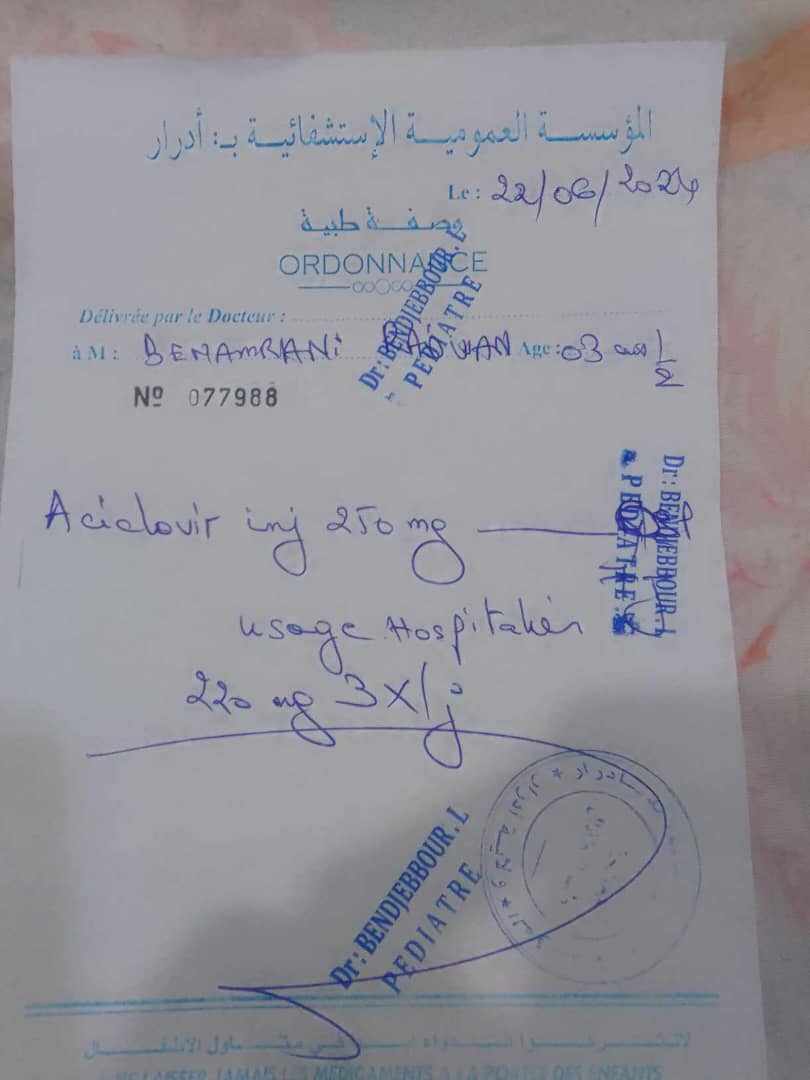 المؤسسة العمومية الإستشفائية بـ: أدرار
Le : 22/06/2024
وصفة طبية
ORDONNANCE
Délivrée par le Docteur :
Dr: BENDJEBBOUR. L
PEDIATRE
à M : BENAMRANI Age : 03 ans 1/2
Nº 077988
Aciclovir inj 250 mg
Dr: BENDJEBBOUR. L
PEDIATRE
usage Hospitalier
220 mg 3X/j
Dr: BENDJEBBOUR. L
PEDIATRE
LAISSER JAMAIS LES MEDICAMENTS A LA PORTEE DES ENFANTS